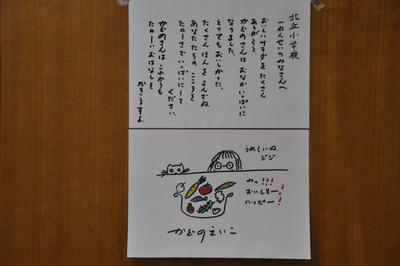 北丘小学校
一ねんせいのみなさんへ
おいしいサラダをたくさん
ありがとう
かどのさんは おなかいっぱいに
なりました。
とってもおいしかった。
たくさん ほんを よんでね
あなたたちの こころを
たのしさで いっぱいにして
ください。
かどのさんは これからも
たのしいおはなしを
かきますよ
うれしいね、
ジジ
わー!!!
おいしそー!
ハッピー!
かどのえいこ